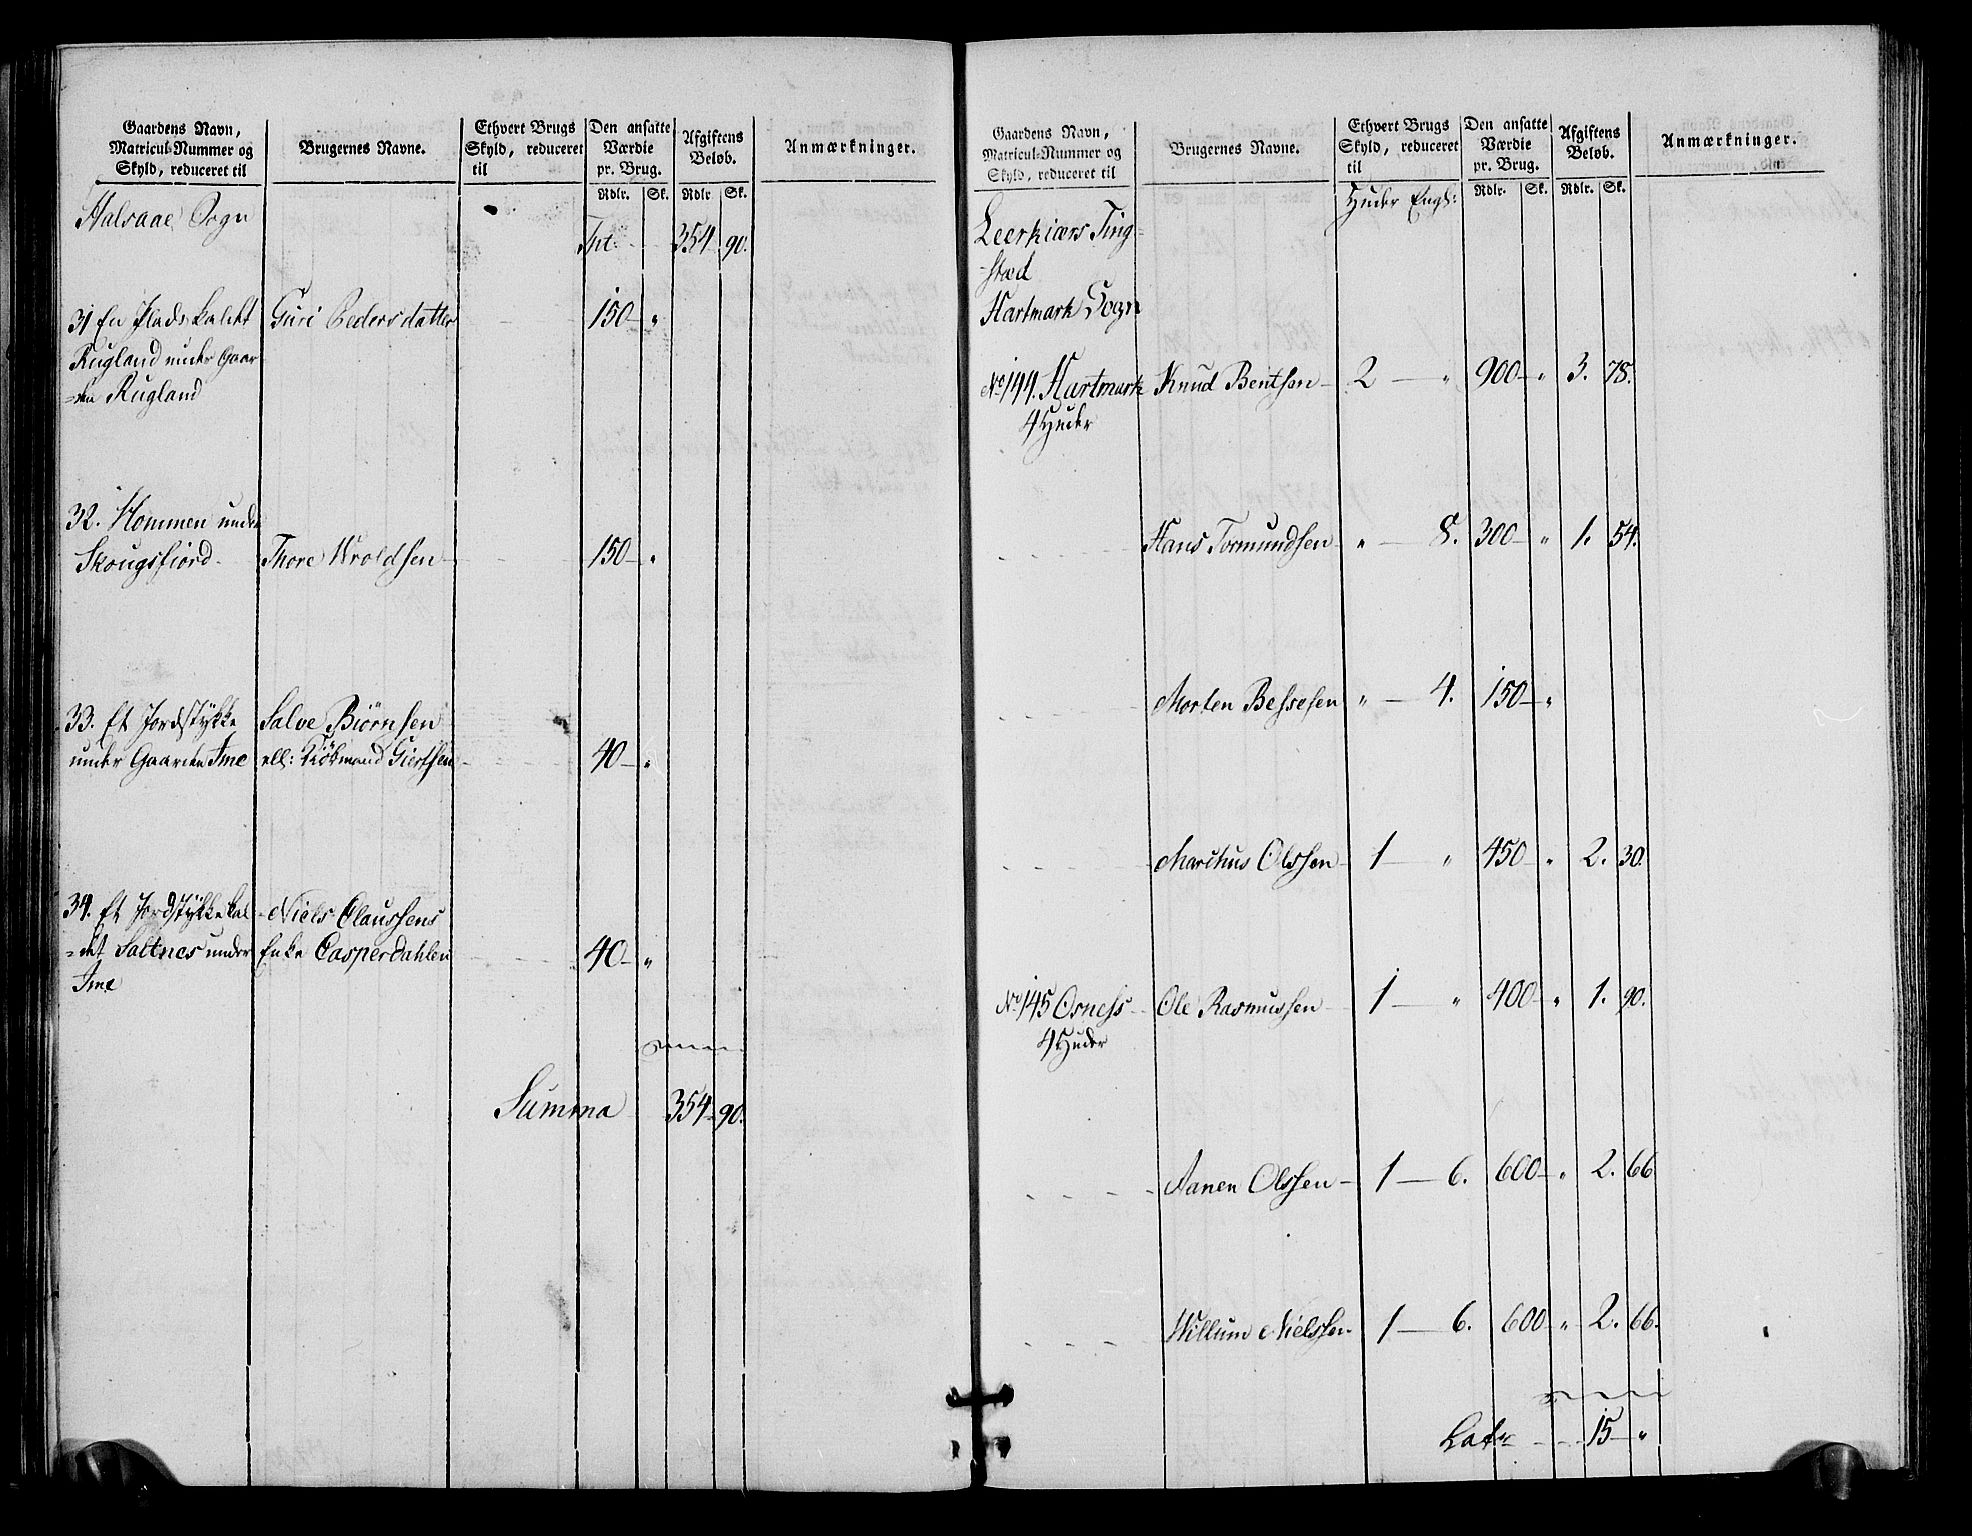 Gaardens Navn, Matricul-Nummer og Skyld, reduceret til | Brugernes Navne. | Ethvert Brugs Skyld, reduceret til | Den ansatte Værdie pr. Brug. Rdlr. Sk. | Afgiftens Beløb. Rdlr Sk. | Anmærkninger.
Halsaae Sogn
Tpt. 354 90.
31 En Plads kaldt Guri Pedersdatter 150 "
Rugland under Gaar-
=den Rugland
32. Hommen under
Skougsfiord. Thore Wroldsen 150 "
33. Et Jordstykke Salve Biörnsen
under Gaarden Ime ell: Kiöbmand Giertsen 40 "
34. Et Jordstykke kal- Niels Claussens
=det Saltnes under Enke Casperdahlen 40 "
Ime
Summa 354 90.
Gaardens Navn, Matricul-Nummer og Skyld, reduceret til | Brugernes Navne. | Ethvert Brugs Skyld, reduceret til | Den ansatte Værdie pr. Brug. Rdlr. Sk. | Afgiftens Beløb. Rdlr. Sk. | Anmærkninger.
Huder Engl:
Leerkiærs Ting-
-stæd
Hartmark Sogn
No 144. Hartmark Knud Bentsen 2 " 900 " 3. 78.
4 Huder
Hans Tormundsen " 8. 300 " 1. 54.
Morten Bessesen " 4. 150 "
Marchus Olssen 1 " 450 " 2. 30.
No 145 Osness Ole Rasmussen 1 " 400 " 1. 90.
4 Huder
Aanen Olssen 1 6. 600 " 2. 66
Willum Nielssen 1 6. 600 " 2. 66.
Lats 15 "